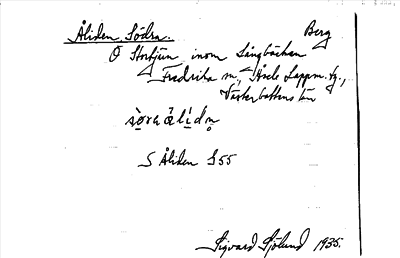 Åliden, Södra. Berg
O Stortjärn inom Långbäcken
Fredrika sn, Åsele Lappm. tg.,
Västerbottens län
sø̀ra ålidn̥
S Åliden S55
Sigvard Sjölund 1935.